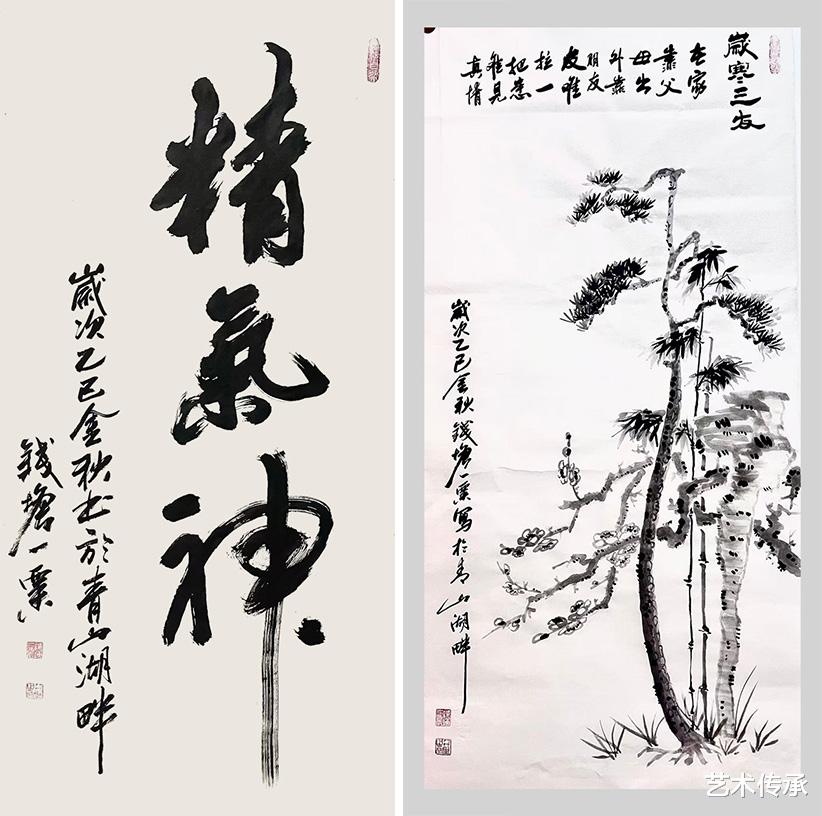 精氣神
歲次乙巳金秋书於青山湖畔
錢塘一粟
歲寒三友
在家
靠父
母出
外靠
朋友
危难
拉一
把患
难見
真情
歲次乙巳金秋錢塘一粟寫於青山湖畔
艺术传承